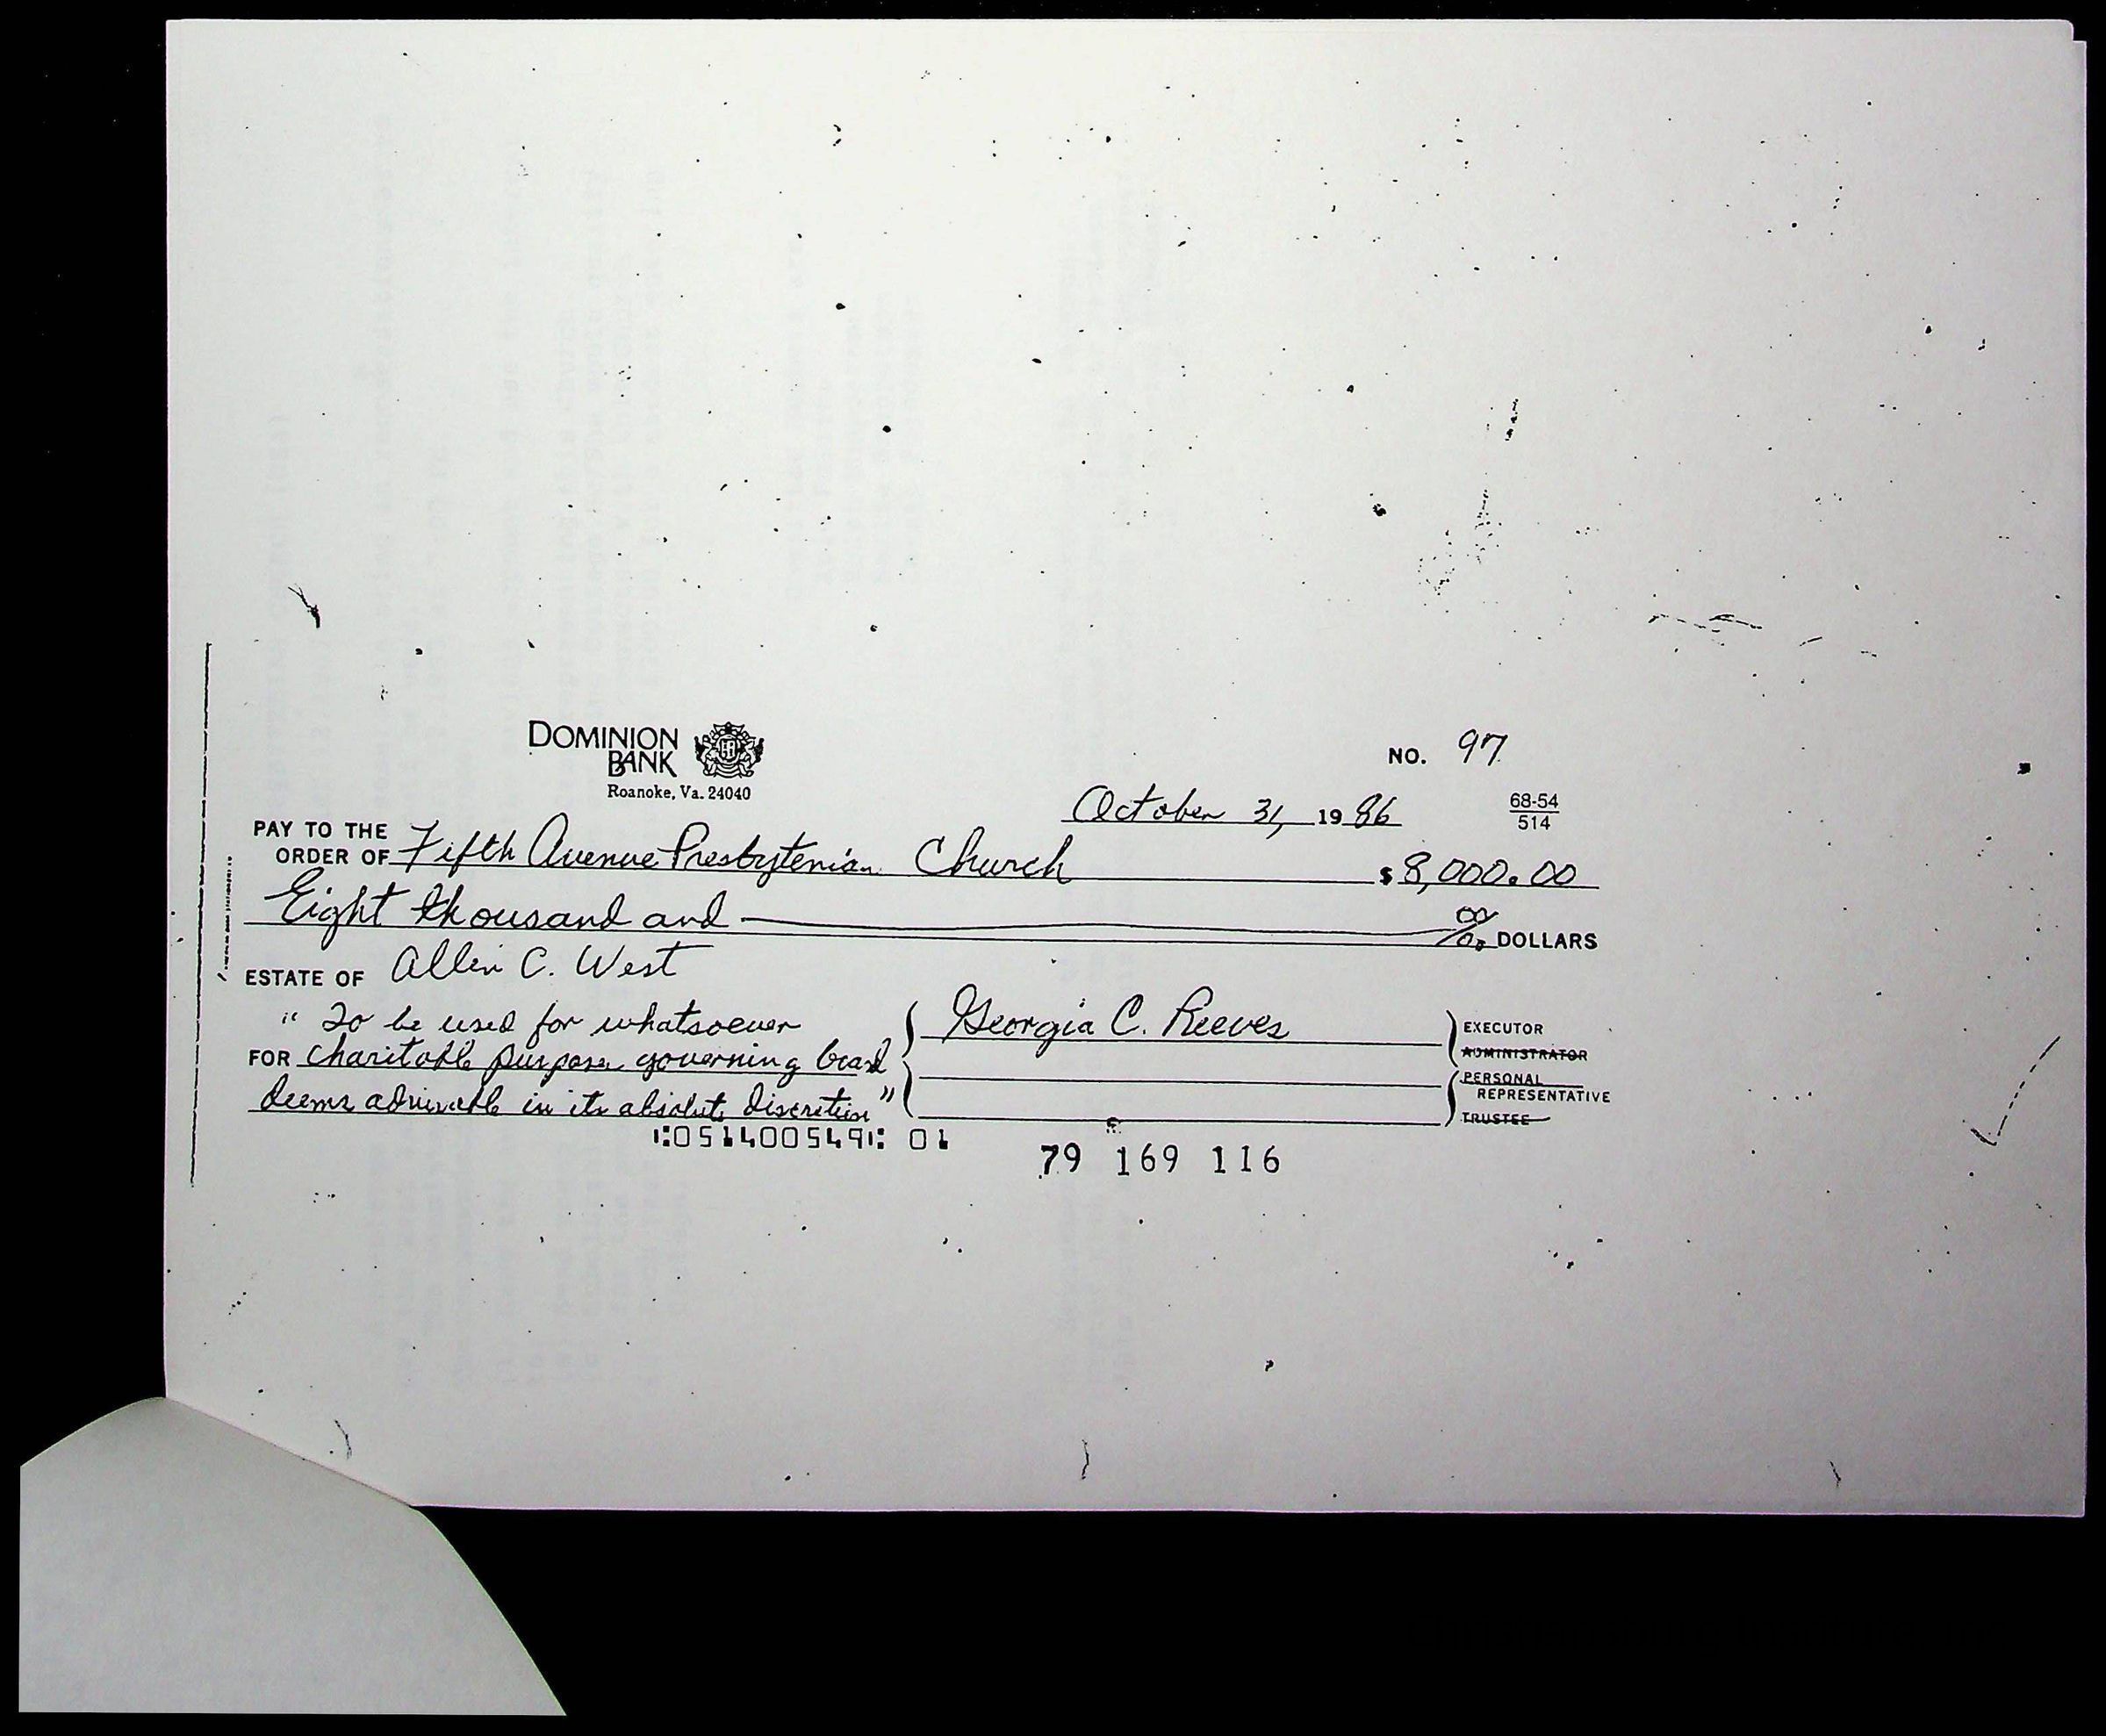 DOMINION
BANK
Roanoke, Va. 24040
NO. 97
October 31, 1986
68-54
514
PAY TO THE
ORDER OF Fifth Avenue Presbyterian Church $ 8,000.00
Eight thousand and 00/00 DOLLARS
ESTATE OF Allen C. West
" To be used for whatsoever
FOR charitable purpose governing board
deems advisable in its absolute discretion"
Georgia C. Reeves
EXECUTOR
ADMINISTRATOR
PERSONAL
REPRESENTATIVE
TRUSTEE
⑆051400549⑆ 01
79 169 116